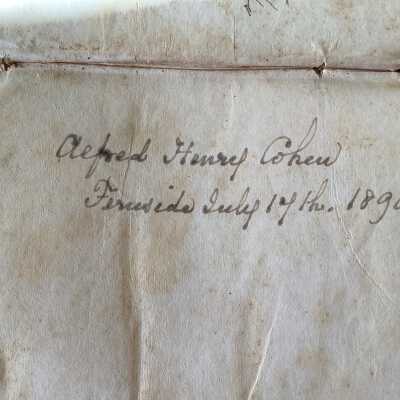 Alfred Henry Cohen
Fernside July 17th. 189